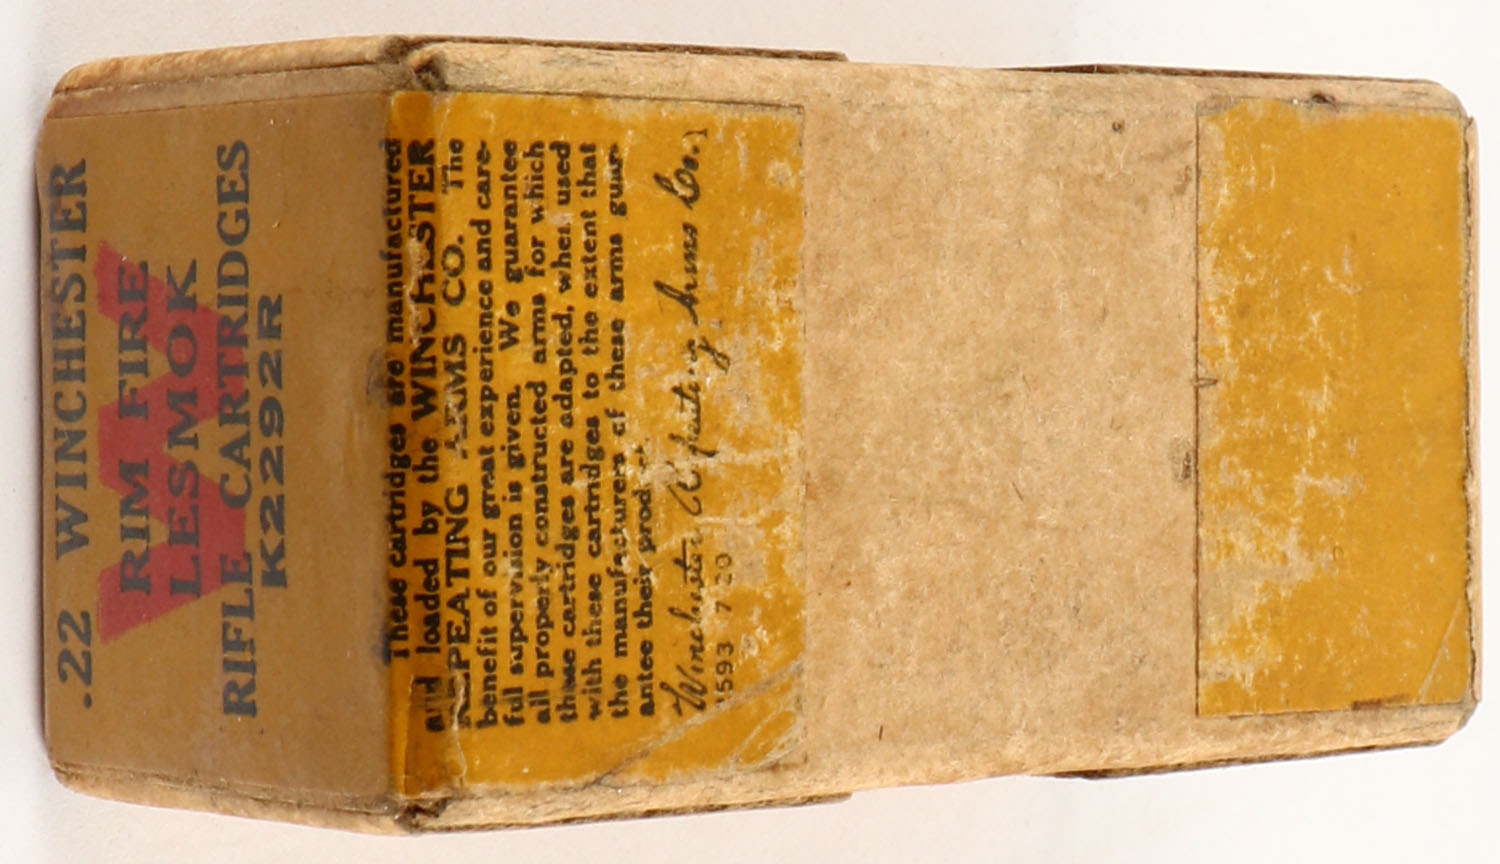 .22 WINCHESTER
RIM FIRE
LESMOK
RIFLE CARTRIDGES
K2292R
W
These cartridges are manufactured
and loaded by the WINCHESTER
REPEATING ARMS CO. The
benefit of our great experience and care-
ful supervision is given. We guarantee
all properly constructed arms for which
these cartridges are adapted, when used
with these cartridges to the extent that
the manufacturers of these arms guar-
antee their product
Winchester Repeating Arms Co.
593 7 20